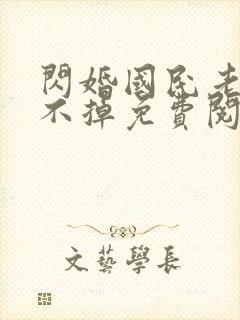 閃婚國民老
不掉免費閱
文藝學長